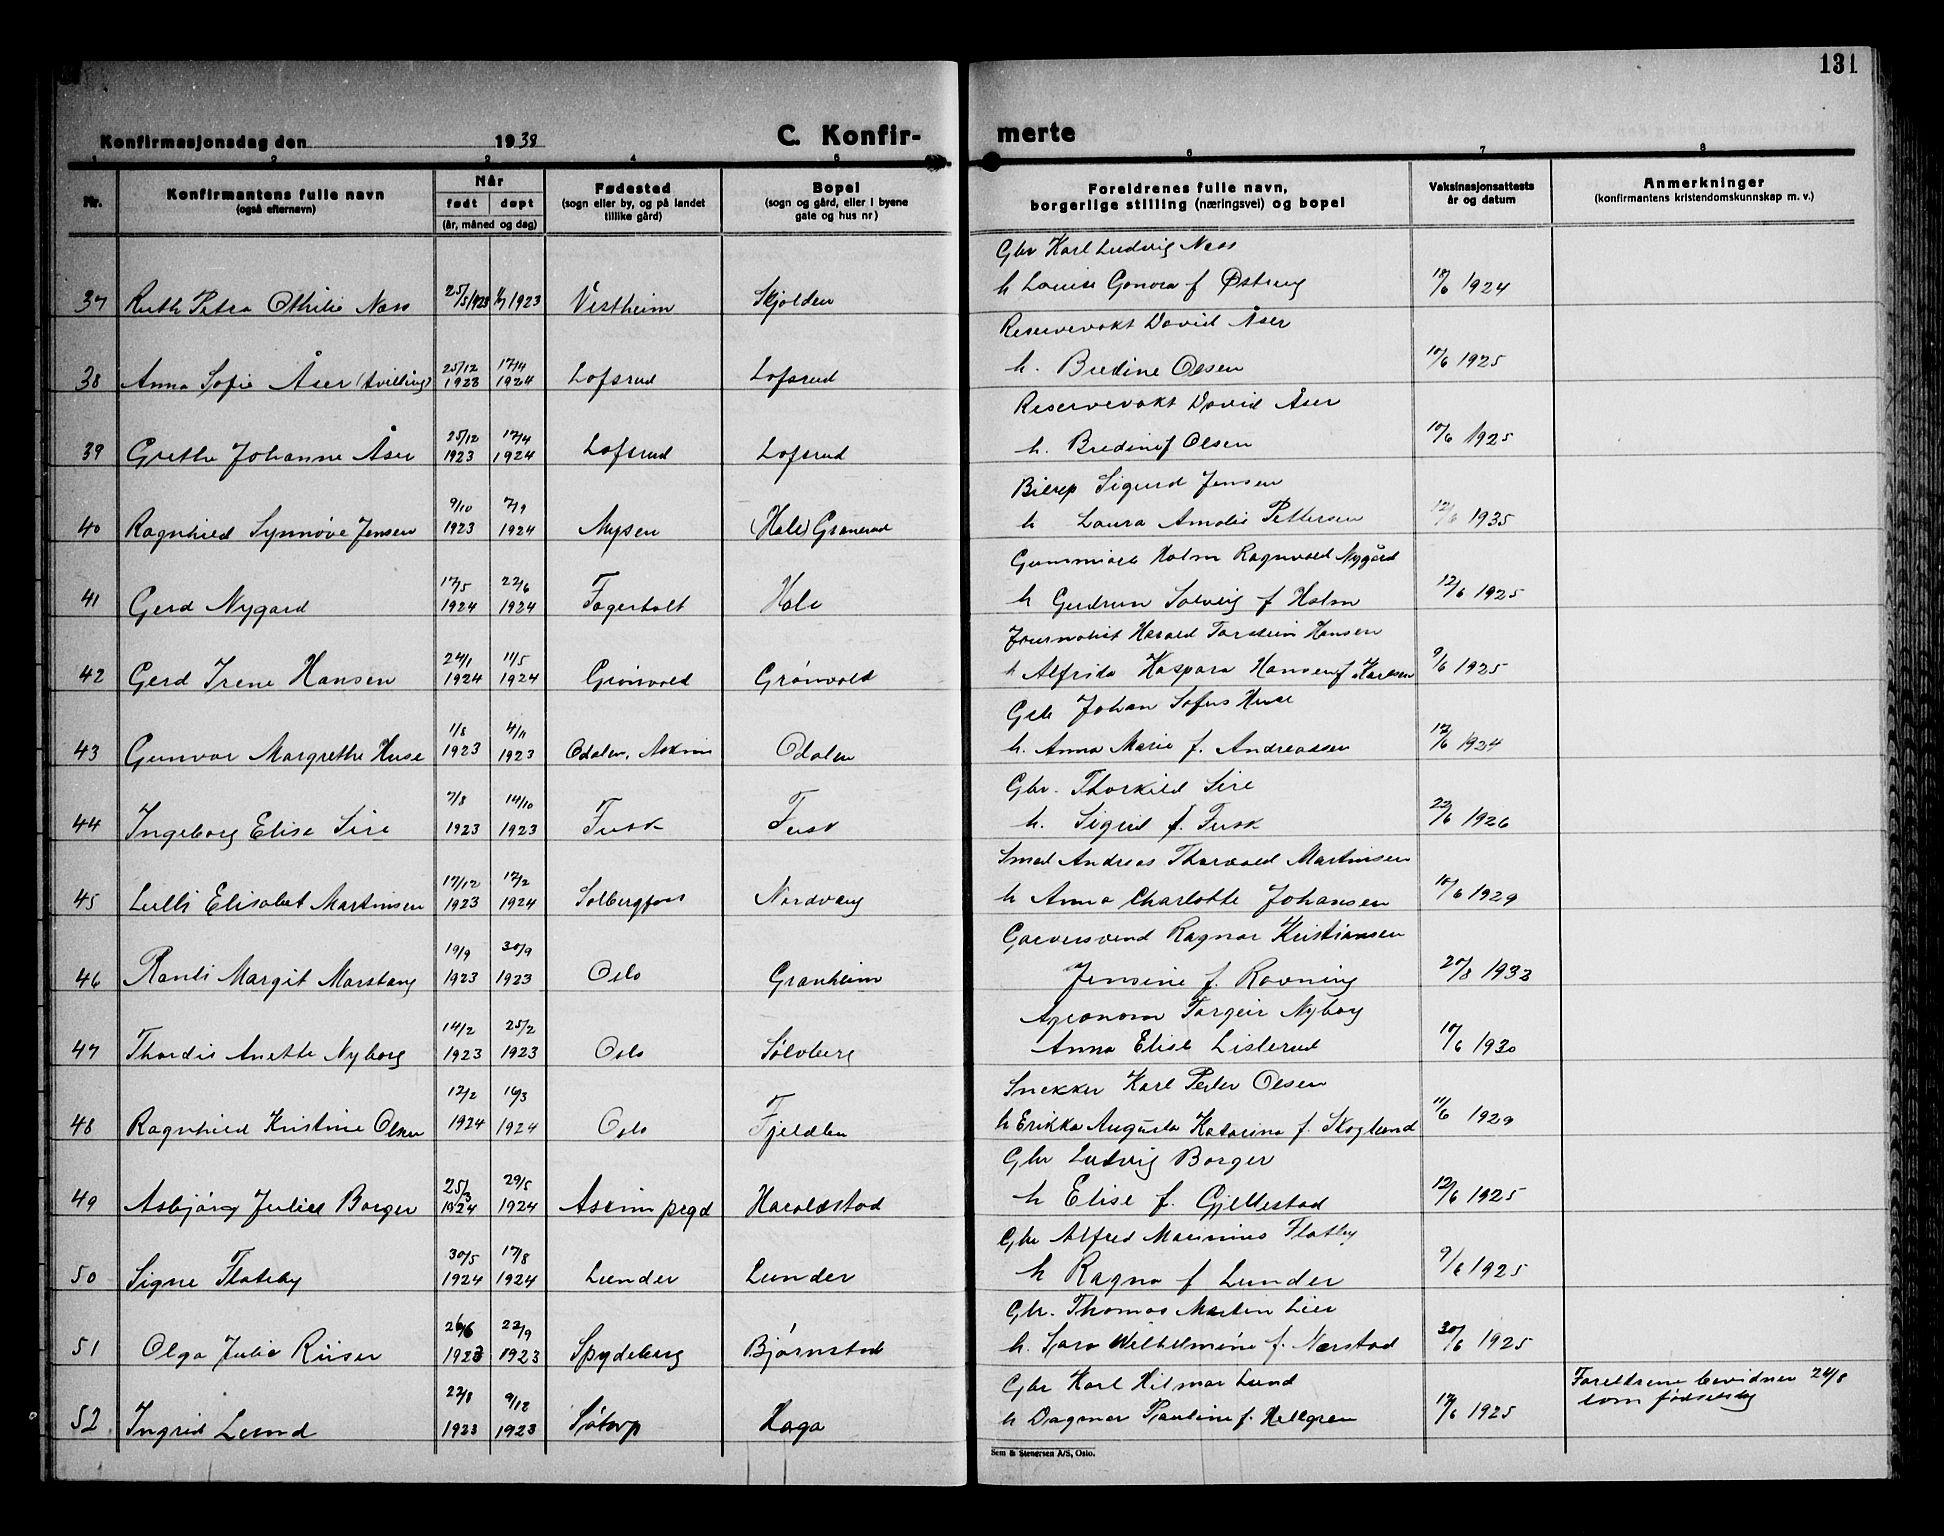 131
Konfirmasjonsdag den 1938
C. Konfir-
merte
1 2 3 4 5 6 7 8
Nr.
Konfirmantens fulle navn
(også efternavn)
Når
født døpt
(år, måned og dag)
Fødested
(sogn eller by, og på landet
tillike gård)
Bopel
(sogn og gård, eller i byene
gate og hus nr)
Foreldrenes fulle navn,
borgerlige stilling (næringsvei) og bopel
Vaksinasjonsattests
år og datum
Anmerkninger
(konfirmantens kristendomskunnskap m. v.)
Gbr Karl Ludvig Næss
37 Ruth Petra Othilie Næss 25/5 1923 1/7 1923 Vestheim Skjolden h Louise Gonora f Østreng 10/6 1924
Reservevakt David Åser
38 Anna Sofie Åser (tvilling) 25/12 1923 17/4 1924 Lofsrud Lofsrud h. Bredine Olsen 10/6 1925
Reservevakt David Åser
39 Grethe Johanne Åser 25/12 1923 17/4 1924 Lofsrud Lofsrud h. Bredine f Olsen 10/6 1925
Sigurd Jensen
40 Ragnhild Synnøve Jensen 9/10 1923 7/9 1924 Mysen (Hole) Granerud h Laura Amalie Pettersen 12/6 1935
Holm Ragnvald Nygård
41 Gerd Nygard 17/5 1924 22/6 1924 Fagerholt Hole h Gudrun Solveig f Holm 12/6 1925
Journalist Harald Torstein Hansen
42 Gerd Irene Hansen 24/1 1924 11/5 1924 Grønvold Grønvold h Alfrida Kaspara Hansen f Karlsen 9/6 1925
Gbr Johan Sofus Huse
43 Gunvor Margrethe Huse 1/8 1923 4/11 1923 Odalen, Askim Odalen h. Anna Marie f. Andreassen 12/6 1924
Gbr. Thorkild Sire
44 Ingeborg Elise Sire 7/8 1923 14/10 1923 Fusk Fusk h. Sigrid f. Fusk 22/6 1926
Smed Andreas Thorvald Martinsen
45 Lulli Elisabet Martinsen 17/12 1923 17/2 1924 Solbergfoss Nordvang h Anna Charlotte Johansen 10/6 1929
Garversvend Ragnar Kristiansen
46 Randi Margit Marstang 19/9 1923 30/9 1923 Oslo Granheim Jensine f. Ravning 20/8 1933
Agronom Torgeir Nyborg
47 Thordis Anette Nyborg 14/2 1923 25/2 1923 Oslo Sølvberg Anna Elise Listerud 10/6 1930
Snekker Karl Peder Olsen
48 Ragnhild Kristine Olsen 12/2 1924 16/3 1924 Oslo Fjeldlen h Erikka Augusta Katarina f. Skoglund 11/6 1929
Gbr Ludvig Borger
49 Asbjørg Julied Borger 25/3 1924 29/5 1924 Askim pegd Haraldstad h Elise f. Gjellestad 12/6 1925
Gbr Alfred Marinius Flateby
50 Signe Flateby 30/5 1924 17/8 1924 Lunder Lunder h Ragna f Lunder 9/6 1925
Gbr. Thomas Martin Lier
51 Olga Julie Riiser 26/6 1923 22/9 1923 Spydeberg Bjørnstad h. Sara Wilhelmine f. Nærstad 30/6 1925
Gbr Karl Hilmar Lund
52 Ingrid Lund 22/8 1923 9/12 1923 Haga h Dagmar Pauline f. Hellgren 12/6 1925 Foreldrene bevidner 24/8
som fødselsdag
Sem & Stenersen A/S, Oslo.